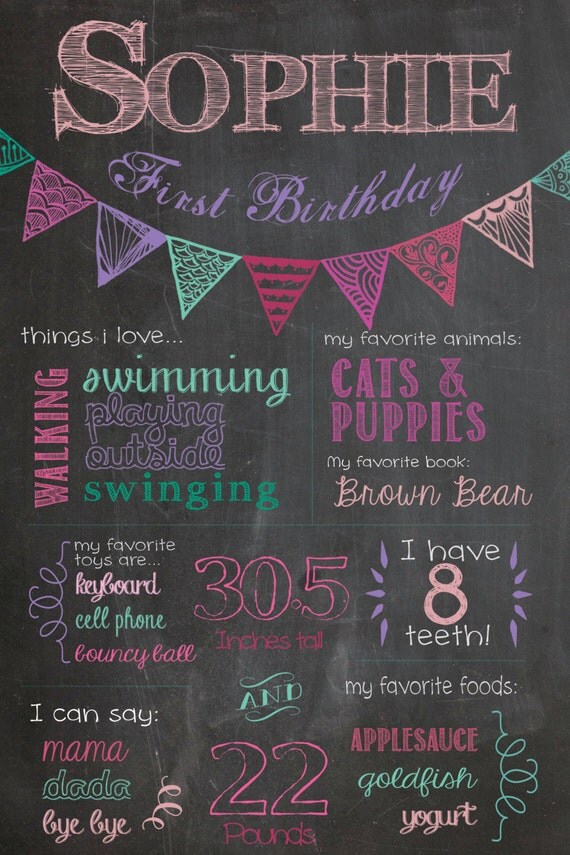 SOPHIE
First Birthday
things i love...
WALKING
swimming
playing
outside
swinging
my favorite animals:
CATS &
PUPPIES
My favorite book:
Brown Bear
my favorite
toys are...
keyboard
cell phone
bouncy ball
30.5
Inches tall
AND
22
Pounds
I have
8
teeth!
I can say:
mama
dada
bye bye
my favorite foods:
APPLESAUCE
goldfish
yogurt